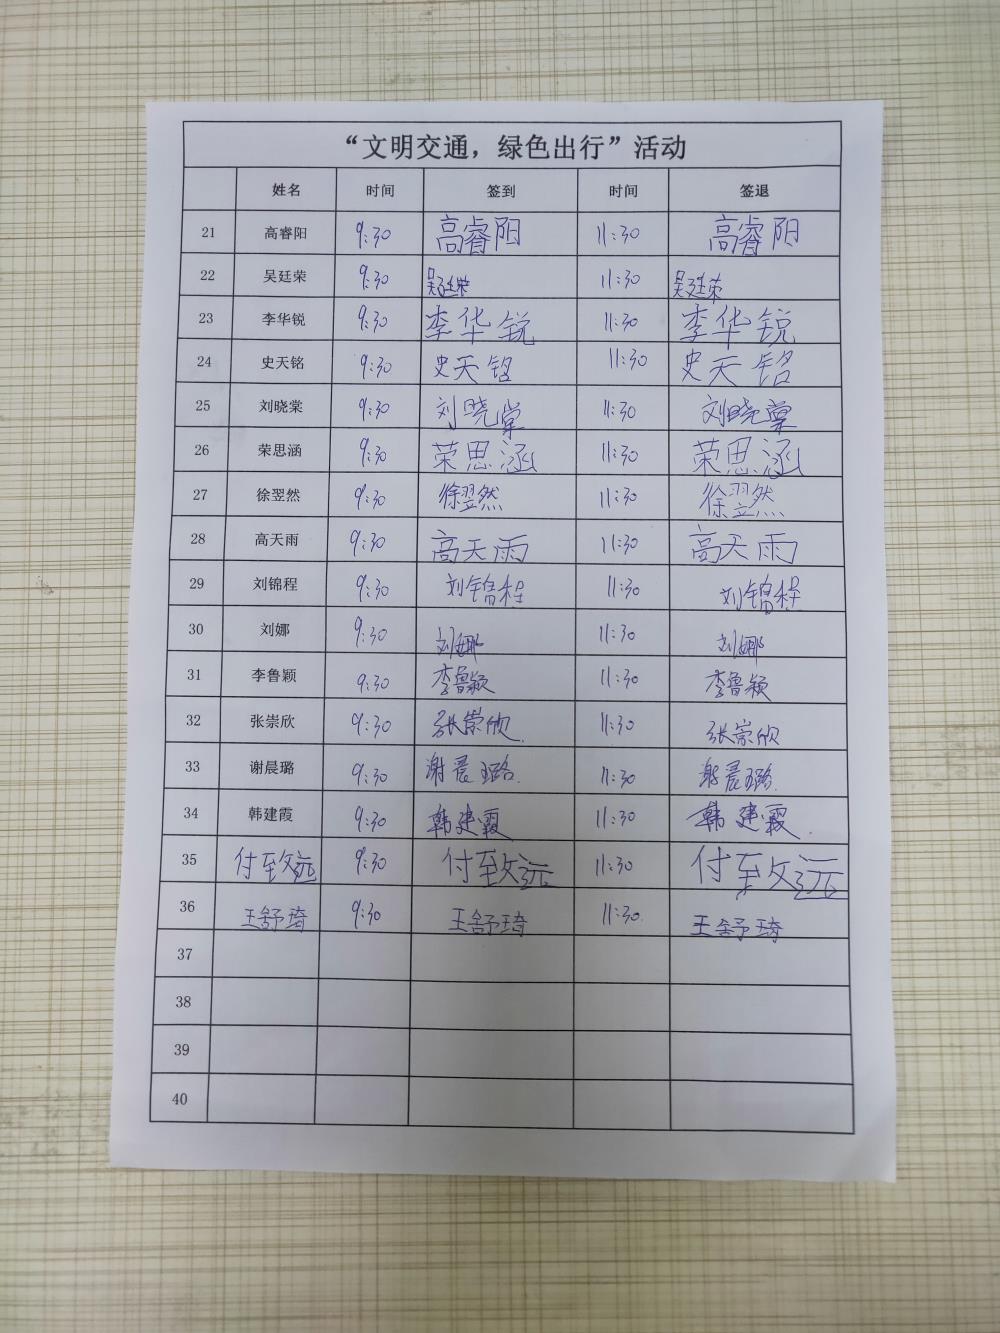 “文明交通，绿色出行”活动
姓名 时间 签到 时间 签退
21 高睿阳 9:30 高睿阳 11:30 高睿阳
22 吴廷荣 9:30 吴廷荣 11:30 吴廷荣
23 李华锐 9:30 李华锐 11:30 李华锐
24 史天铭 9:30 史天铭 11:30 史天铭
25 刘晓棠 9:30 刘晓棠 11:30 刘晓棠
26 荣思涵 9:30 荣思涵 11:30 荣思涵
27 徐翌然 9:30 徐翌然 11:30 徐翌然
28 高天雨 9:30 高天雨 11:30 高天雨
29 刘锦程 9:30 刘锦程 11:30 刘锦程
30 刘娜 9:30 刘娜 11:30 刘娜
31 李鲁颖 9:30 李鲁颖 11:30 李鲁颖
32 张崇欣 9:30 张崇欣. 11:30 张崇欣
33 谢晨璐 9:30 谢晨璐. 11:30 谢晨璐.
34 韩建霞 9:30 韩建霞 11:30 韩建霞.
35 付致远 9:30 付致远 11:30 付致远
36 王舒琦 9:30 王舒琦 11:30. 王舒琦
37
38
39
40